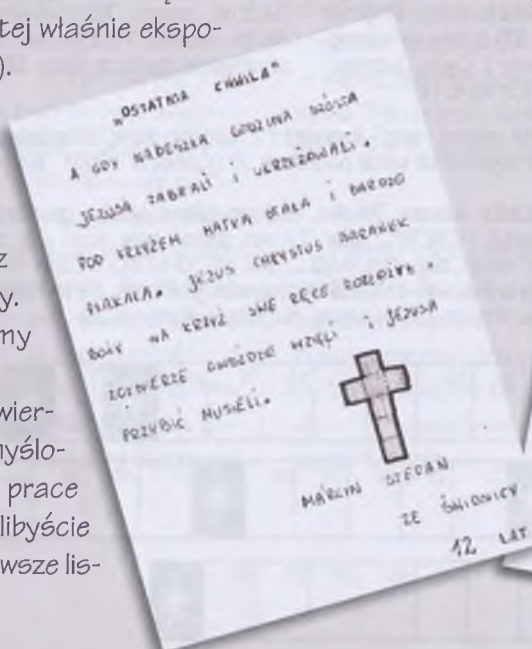 tej właśnie ekspo-
).
z
y.
my
wier-
myślo-
prace
libyście
wsze lis-
„OSTATNIA CHWILA”
A GDY NADESZŁA GODZINA SZÓSTA
JEZUSA ZABRALI i UKRZYŻOWALI.
POD KRZYŻEM MATKA STAŁA i BARDZO
PŁAKAŁA. JEZUS CHRYSTUS BARANEK
BOŻY NA KRZYŻ SWE RĘCE ROZŁOŻYŁ.
ŻOŁNIERZE GWOŹDZIE WZIĘLI i JEZUSA
PRZYBIĆ MUSIELI.
MARCIN
ZE ŚWIDNICY
12 LAT